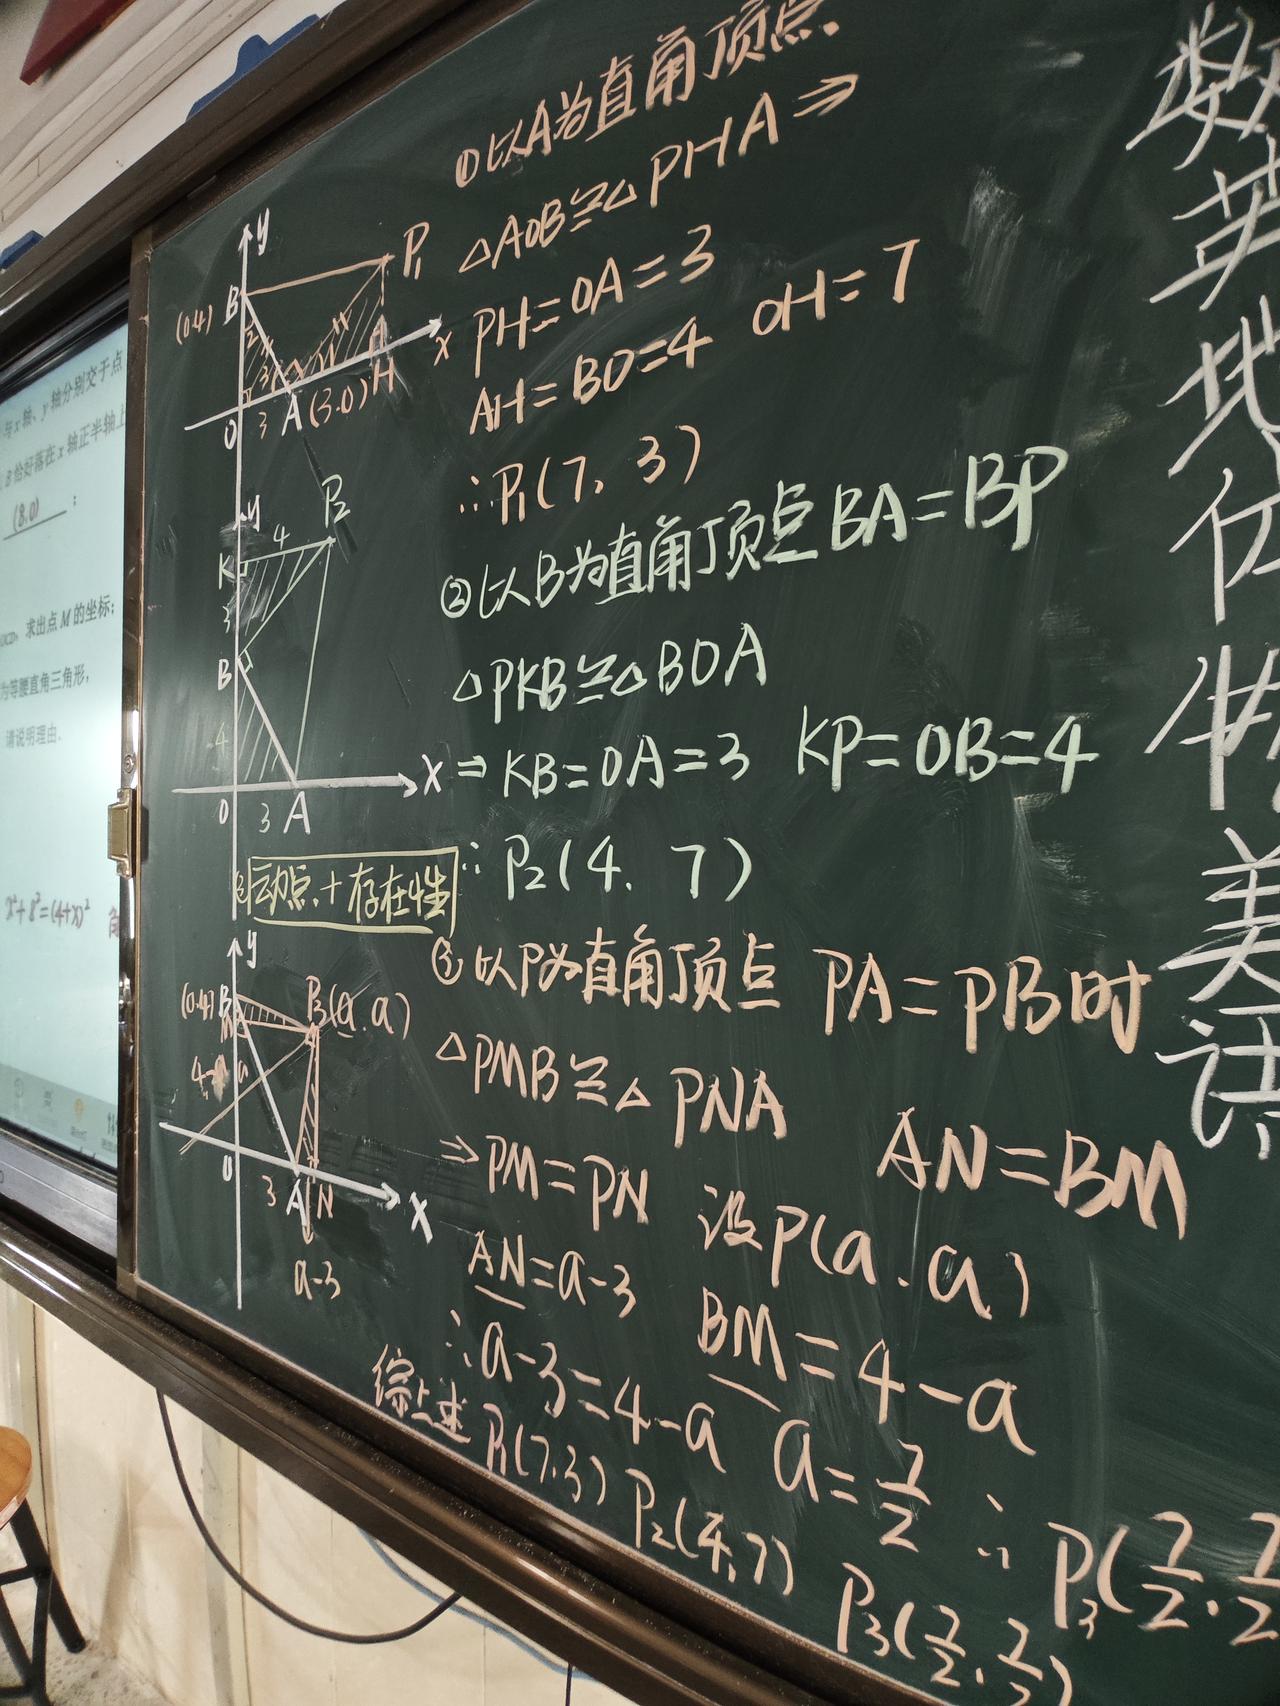 与x轴、y轴分别交于点
B恰好落在x轴正半轴上
(8.0) ;
求出点M的坐标;
为等腰直角三角形,
请说明理由.
x²+8²=(4+x)²
①以A为直角顶点.
△AOB≌△PHA⇒
PH=OA=3
AH=BO=4 OH=7
∴P₁(7, 3)
y
B
(0.4)
P₁
x
O 3 A (3.0) H
②以B为直角顶点 BA=BP
△PKB≌△BOA
⇒KB=OA=3 KP=OB=4
∴P₂(4, 7)
y
P₂
K 4
3
B
4
O 3 A
x
动点+存在性
③以P为直角顶点 PA=PB时
△PMB≌△PNA
⇒PM=PN AN=BM
设P(a,a)
AN=a-3
BM=4-a
∴a-3=4-a
a=7/2 ∴P₃(7/2,7/2
y
(0.4) B
P₃(a.a)
4-a a
O 3 A N
x
a-3
综上述 P₁(7.3) P₂(4,7) P₃(7/2,7/2)
数
英
地
生
物
美